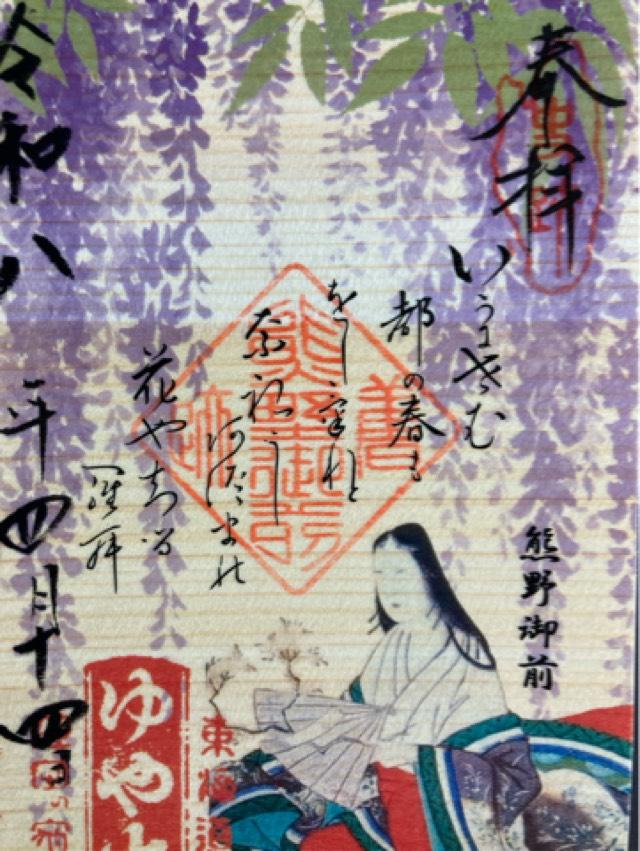 奉拝
いかにせむ
都の春も
をしけれと
奈礼し
あつまの
花やちる
熊野御前
令和八年四月十四日
ゆや
東海道